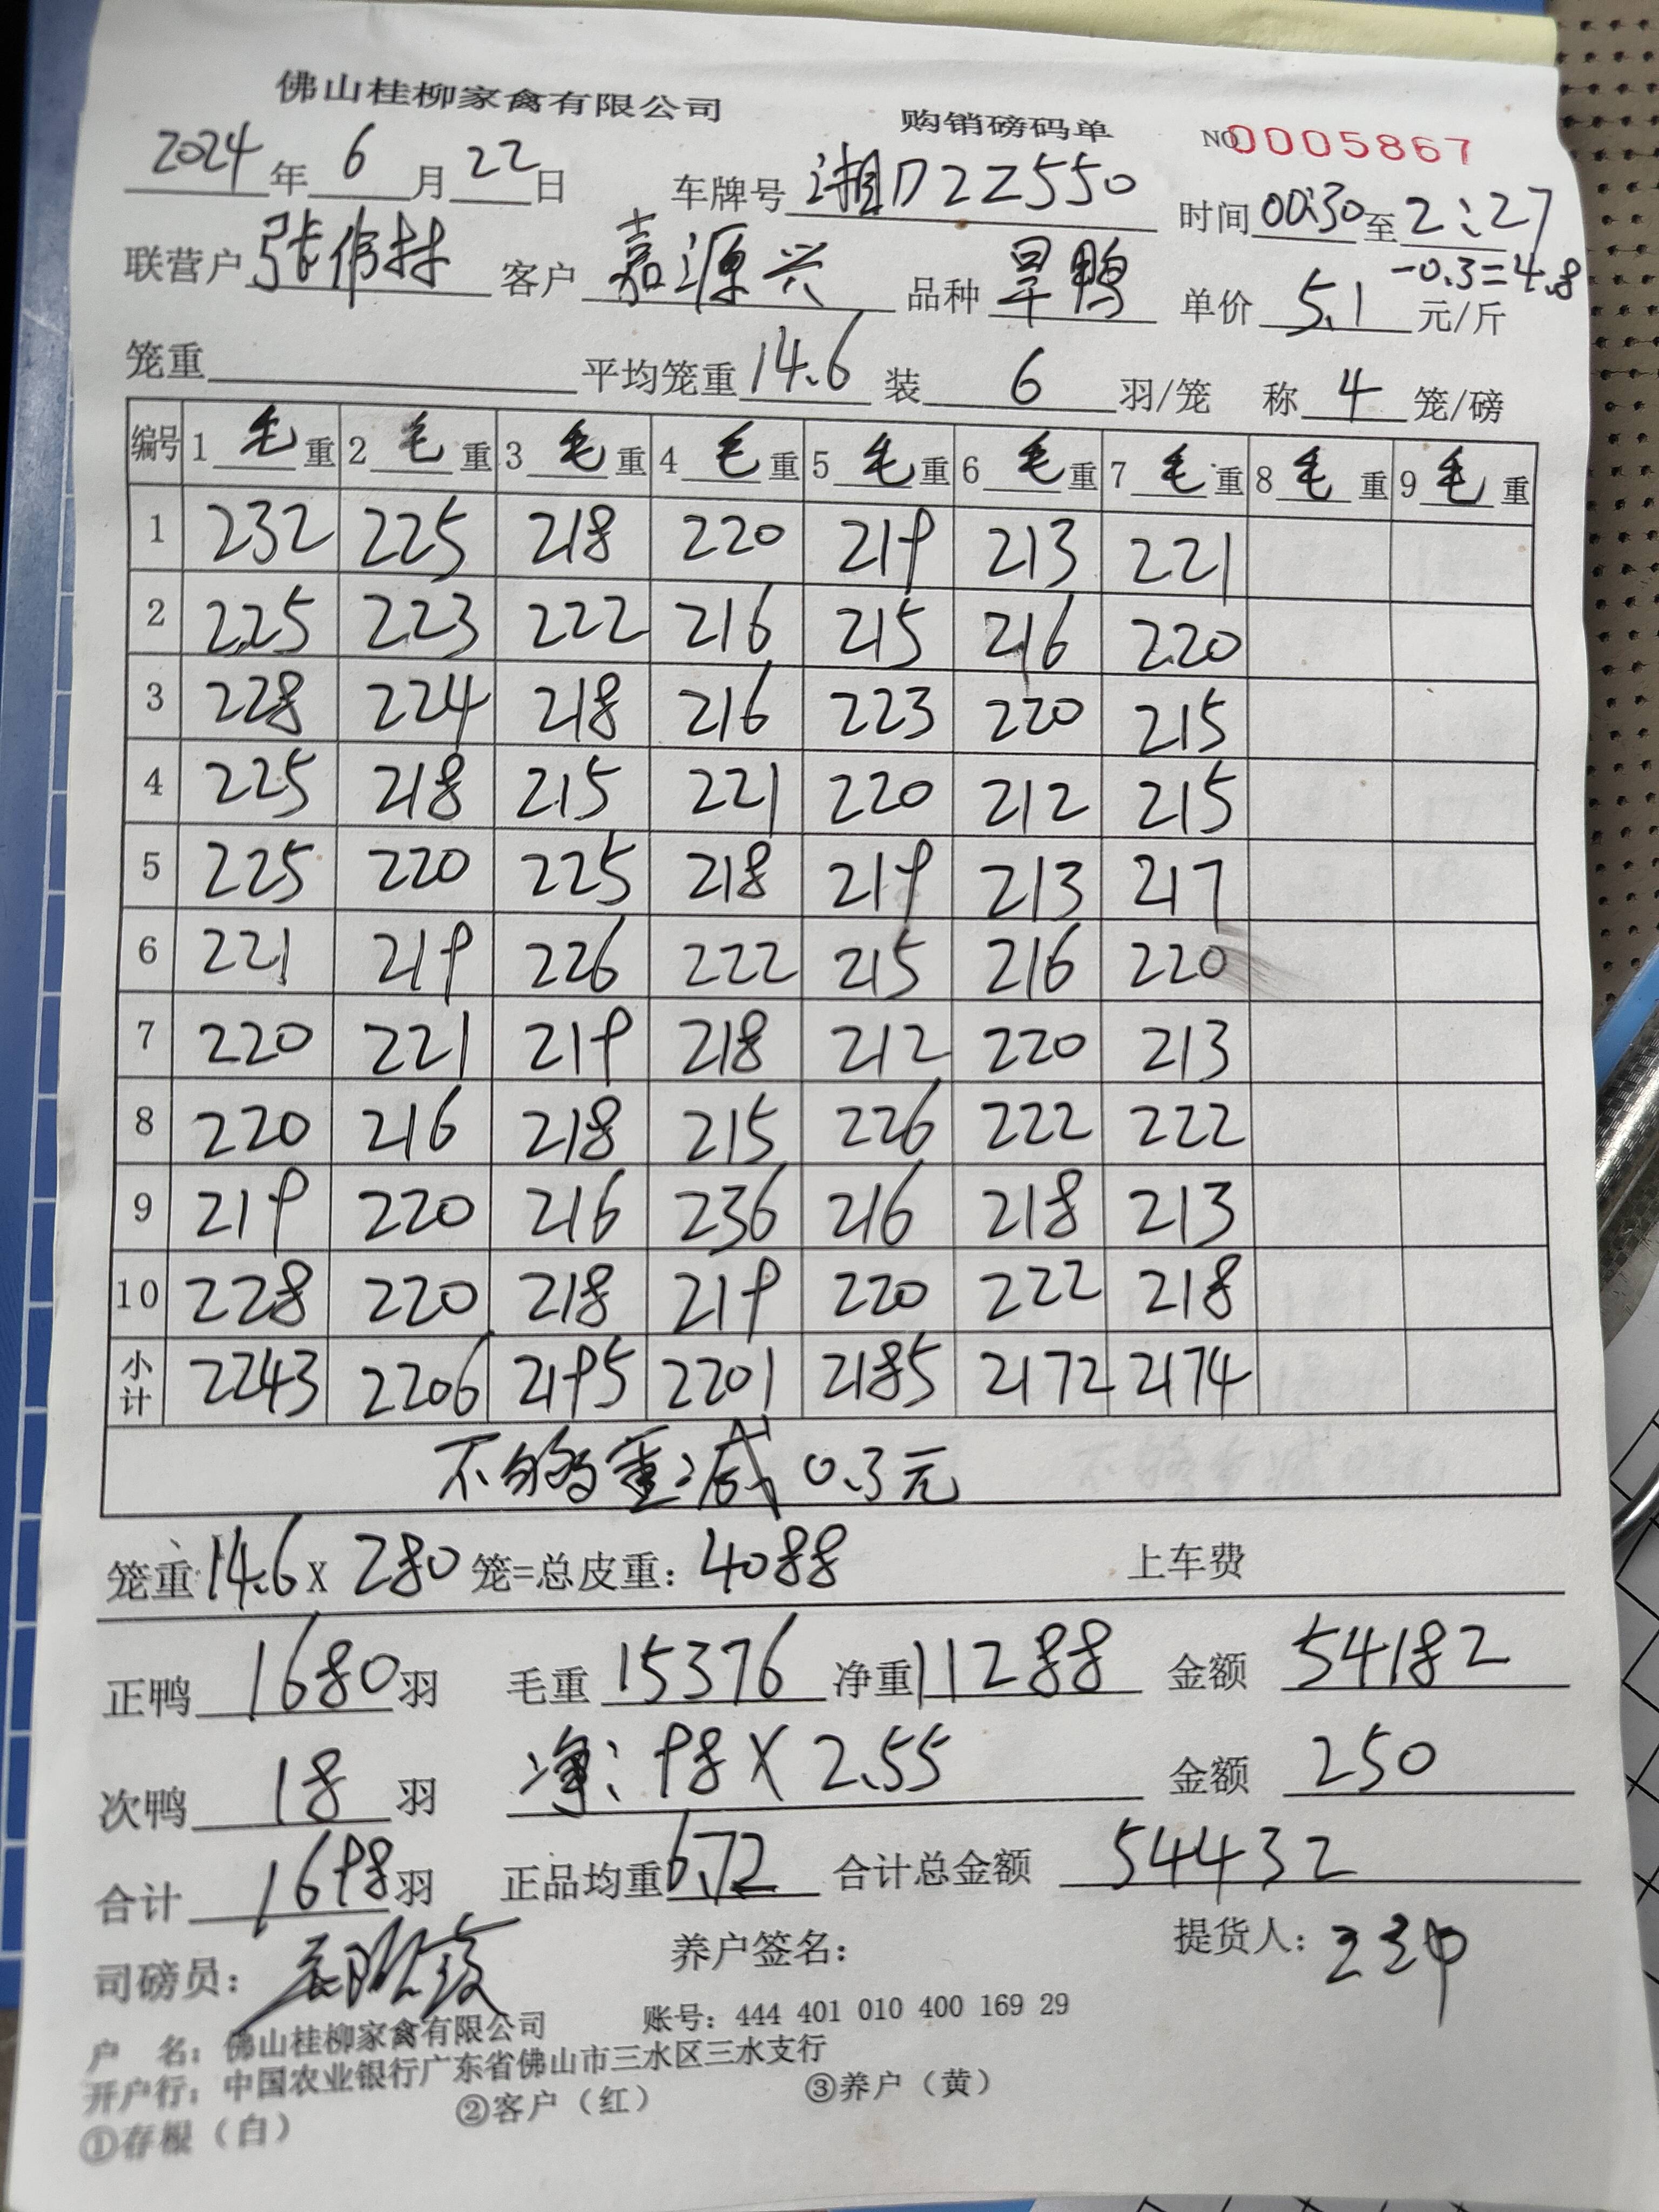 佛山桂柳家禽有限公司 购销磅码单 NO 0005867
2024年6月22日 车牌号 湘D2Z550 时间 00:30 至 2:27
-0.3=4.8
联营户 张伟林 客户 嘉源兴 品种 旱鸭 单价 5.1 元/斤
笼重 平均笼重 14.6 装 6 羽/笼 称 4 笼/磅
编号 1 毛重 2 毛重 3 毛重 4 毛重 5 毛重 6 毛重 7 毛重 8 毛重 9 毛重
1 232 225 218 220 219 213 221
2 225 223 222 216 215 216 220
3 228 224 218 216 223 220 215
4 225 218 215 221 220 212 215
5 225 220 225 218 219 213 217
6 221 219 226 222 215 216 220
7 220 221 219 218 212 220 213
8 220 216 218 215 226 222 222
9 219 220 216 236 216 218 213
10 228 220 218 219 220 222 218
小计 2243 2206 2195 2201 2185 2172 2174
不够重减 0.3元
笼重 14.6 X 280 笼=总皮重: 4088 上车费
正鸭 1680 羽 毛重 15376 净重 11288 金额 54182
次鸭 18 羽 净: 98 X 2.55 金额 250
合计 1698 羽 正品均重 6.72 合计总金额 54432
司磅员: 养户签名: 提货人:
户 名: 佛山桂柳家禽有限公司 账号: 444 401 010 400 169 29
开户行: 中国农业银行广东省佛山市三水区三水支行
①存根(白) ②客户(红) ③养户(黄)